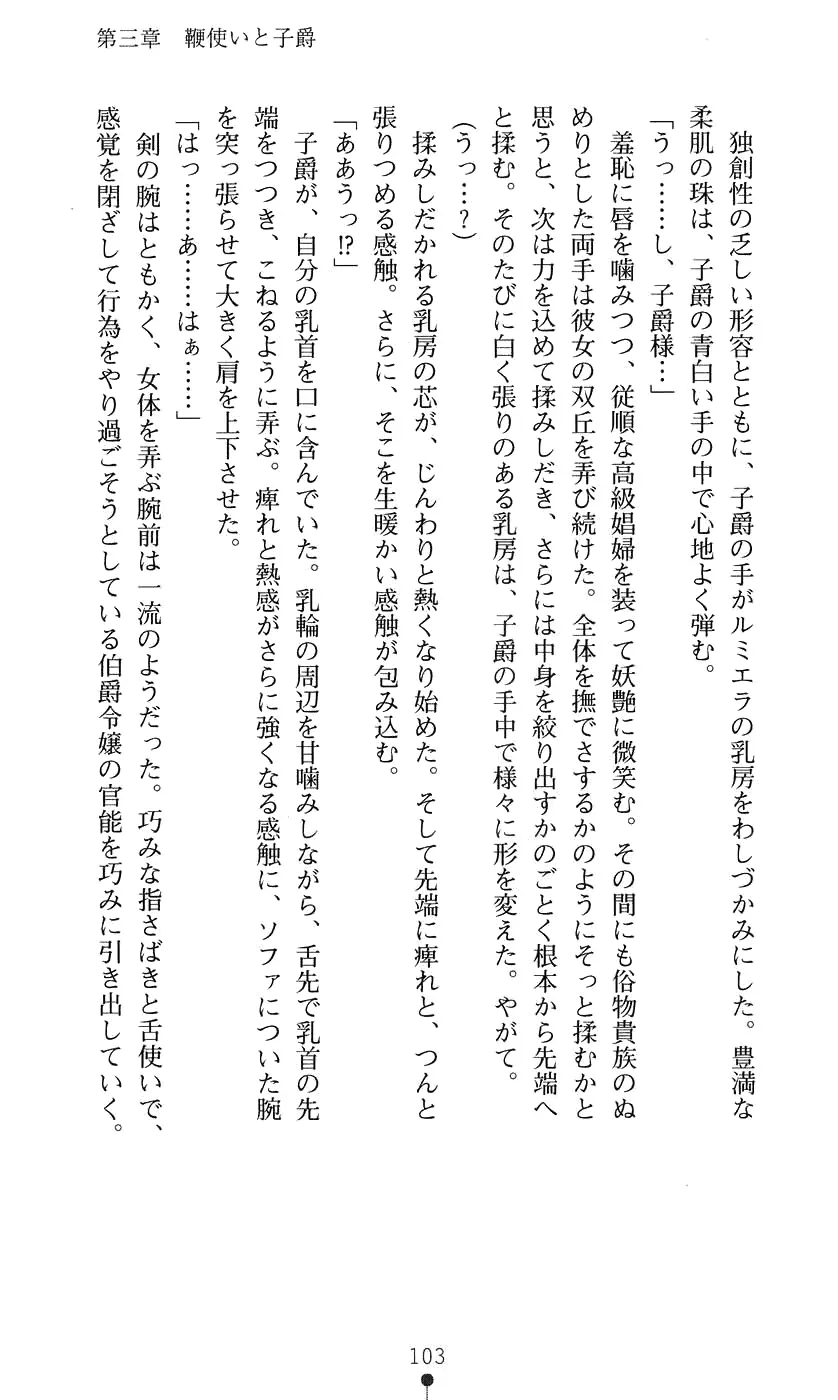 第三章　鞭使いと子爵
　独創性の乏しい形容とともに、子爵の手がルミエラの乳房をわしづかみにした。豊満な
柔肌の珠は、子爵の青白い手の中で心地よく弾む。
「うっ……し、子爵様…」
　羞恥に唇を噛みつつ、従順な高級娼婦を装って妖艶に微笑む。その間にも俗物貴族のぬ
めりとした両手は彼女の双丘を弄び続けた。全体を撫でさするかのようにそっと揉むかと
思うと、次は力を込めて揉みしだき、さらには中身を絞り出すかのごとく根本から先端へ
と揉む。そのたびに白く張りのある乳房は、子爵の手中で様々に形を変えた。やがて。
（うっ…？）
　揉みしだかれる乳房の芯が、じんわりと熱くなり始めた。そして先端に痺れと、つんと
張りつめる感触。さらに、そこを生暖かい感触が包み込む。
「ああうっ!?」
　子爵が、自分の乳首を口に含んでいた。乳輪の周辺を甘噛みしながら、舌先で乳首の先
端をつつき、こねるように弄ぶ。痺れと熱感がさらに強くなる感触に、ソファについた腕
を突っ張らせて大きく肩を上下させた。
「はっ……あ……はぁ……」
　剣の腕はともかく、女体を弄ぶ腕前は一流のようだった。巧みな指さばきと舌使いで、
感覚を閉ざして行為をやり過ごそうとしている伯爵令嬢の官能を巧みに引き出していく。
103